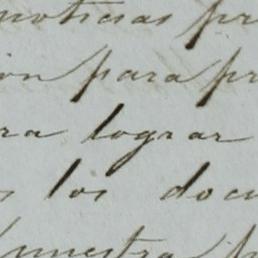 noticias pr
ón para pr
ra lograr
s los docu
muestra p